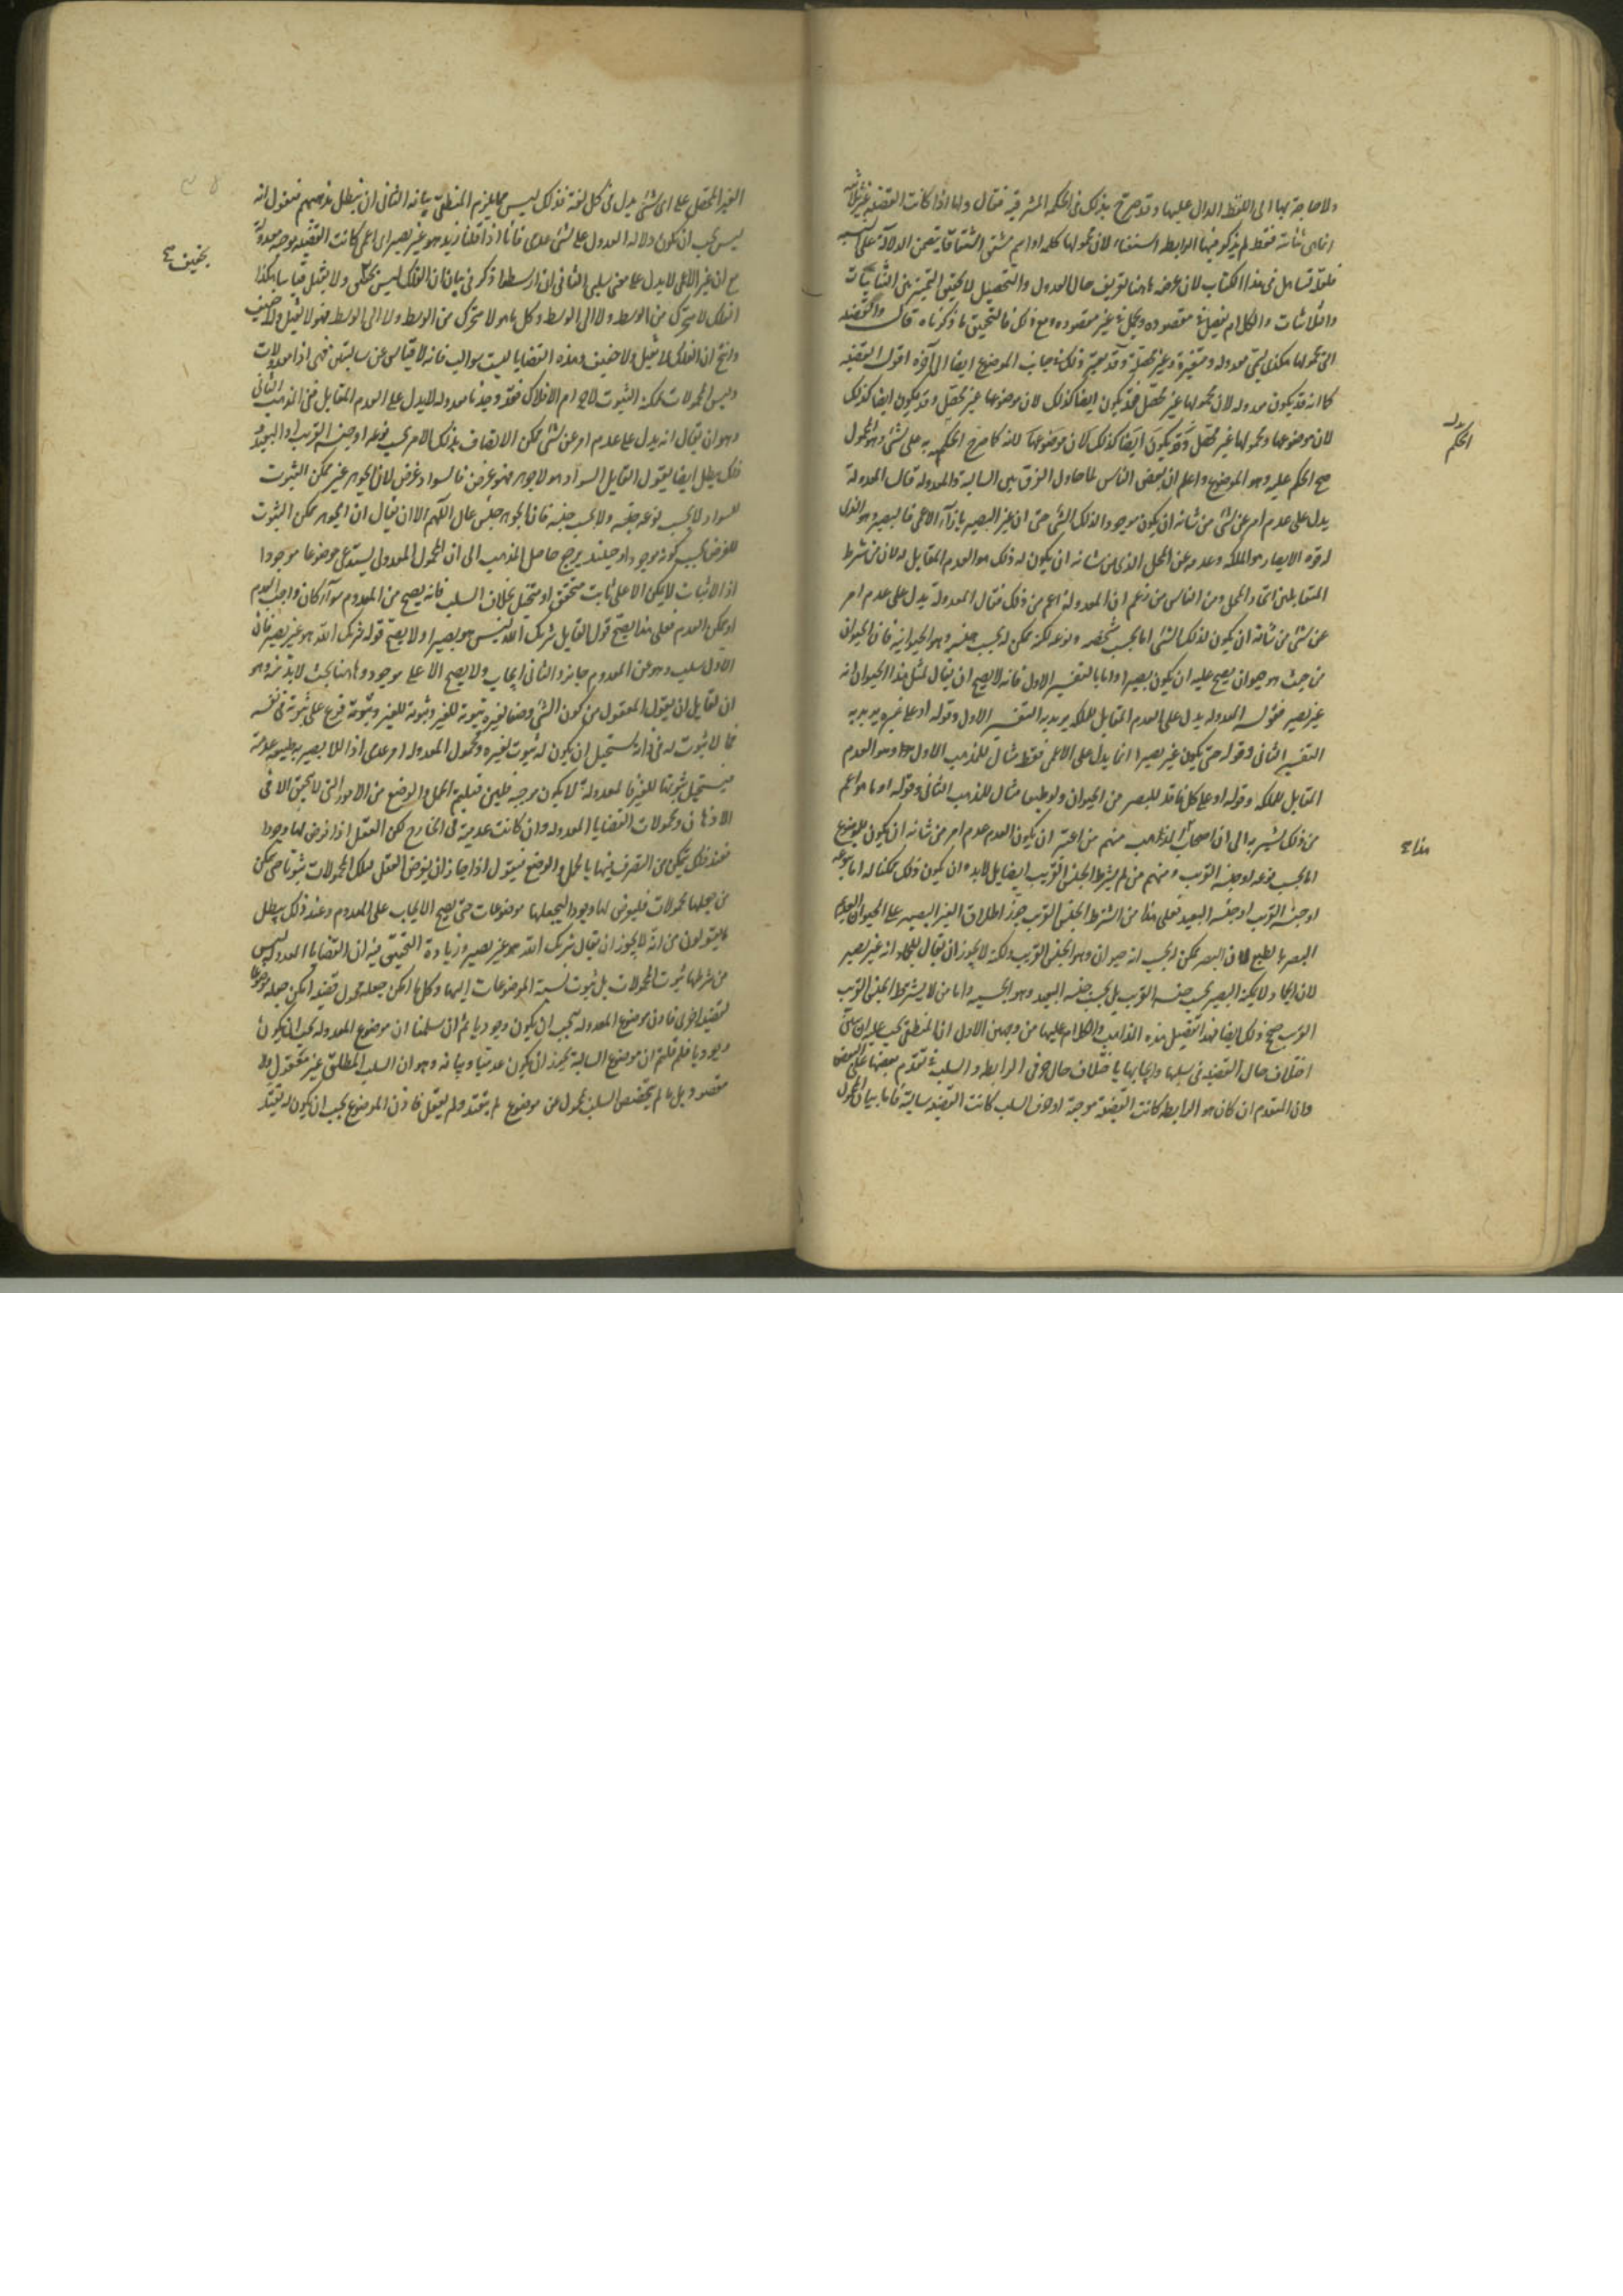 ولا حاجة بها الى اللفظ الدال عليها وقد صرح بذلك فى الحكمة المشرقية فقال ولهذا اذا كانت القضية غير ثلاثية
اعنى ثنائية فقط لم يذكر فيها الرابطة استغناء لان محمولها كلمة او اسم مشتق اشتقاقا يتضمن الدلالة على النسبة
فلعله تساهل فى هذا الكتاب لان غرضه هاهنا تعريف حال العدول والتحصيل لا تحقيق التمييز بين الثنائيات
والثلاثيات والكلام بتفصيله مقصوده وبجملته غير مقصوده ومع ذلك فالتحقيق ما ذكرناه قال والقضية
التى محمولها هكذى تسمى معدولة ومتغيرة وغير محصلة وقد يعتبر ذلك فى جانب الموضوع ايضا الى آخره اقول القضية
كما انه قد يكون معدولة لان محمولها غير محصل فقد يكون ايضا كذلك لان موضوعها غير محصل وقد يكون ايضا كذلك
لان موضوعها ومحمولها غير محصل وقد يكون ايضا كذلك لان موضوعها لانه كما صح الحكم به على شئ وهو المحمول
صح الحكم عليه وهو الموضوع واعلم ان بعض الناس لما حاول الفرق بين السالبة والمعدولة قال المعدولة
يدل على عدم امر عن شئ من شانه ان يكون موجودا لذلك الشئ حتى ان غير البصير بازاء الاعمى فالبصير وهو الذى
له قوة الابصار هو الملكة وعدمه عن المحل الذى من شانه ان يكون له ذلك هو العدم المقابل له لان من شرط
المتقابلين اتحاد المحل ومن الناس من زعم ان المعدولة اعم من ذلك فقال المعدولة تدل على عدم امر
عن شئ من شانه ان يكون لذلك الشئ اما بحسب شخصه ونوعه لكنه ممكن له بحسب جنسه وهو الحيوانية فان الحيوان
من حيث هو حيوان يصح عليه ان يكون بصيرا واما بالتفسير الاول فانه لا يصح ان يقال لمثل هذا الحيوان انه
غير بصير فقوله المعدولة يدل على العدم المقابل للملكة يريد به التفسير الاول وقوله او على غيره يريد به
التفسير الثانى وقوله حتى يكون غير بصير انما يدل على الاعمى فقط مثال للمذهب الاول وهو العدم
المقابل للملكة وقوله او على كل فاقد للبصر من الحيوان ولو طبعا مثال للمذهب الثانى وقوله او ما هو اعم
من ذلك يشير به الى ان اصحاب المذهب منهم من اعتبر ان يكون العدم عدم امر من شانه ان يكون للموضوع
اما بحسب نوعه او جنسه القريب ومنهم من لم يشترط الجنس القريب ايضا بل لابد وان يكون ذلك ممكنا له اما بنوعه
او جنسه القريب او جنسه البعيد فعلى هذا من اشترط الجنس القريب جوز اطلاق الغير البصير على الحيوان العديم
البصر بالطبع فان البصر ممكن له بحسب انه حيوان وهو الجنس القريب ولكنه لا يجوز ان يقال للجماد انه غير بصير
لان الجماد لا يمكنه البصير بحسب جنسه القريب بل بحسب جنسه البعيد وهو الجسمية واما من لا يشترط الجنس القريب
القريب صح ذلك ايضا فهذا تفصيل هذه المذاهب والكلام عليها من وجهين الاول ان المنطقى يجب عليه ان يبين
اختلاف حال القضية فى سلبها وايجابها باختلاف حال حرفى الرابطة والسلب فى تقدم بعضها على البعض
وان المتقدم ان كان هو الرابطة كانت القضية موجبة او حرف السلب كانت القضية سالبة فاما بيان المحمول
الحكم
هذا
الغير المحصل على اى شئ يدل فى كل لغة فذلك ليس مما يلزم المنطقى بيانه الثانى ان نبطل مذهبهم فنقول انه
ليس يجب ان يكون دلالة العدول على شئ عدمى فانا اذا قلنا زيد هو غير بصير اى اعمى كانت القضية موجبة معدولة
مع ان غير الاعمى لا يدل على معنى سلبى الثانى ان ارسطو ذكر فى بيان ان الفلك ليس بثقيل ولا بخفيف قياسا هكذا
الفلك لا متحرك من الوسط ولا الى الوسط وكل ما هو لا متحرك من الوسط ولا الى الوسط فهو لا ثقيل ولا خفيف
وانتج ان الفلك لا ثقيل ولا خفيف وهذه القضايا ليست سوالب فانه لا قياس عن سالبتين فهى اذا معدولات
وليس المحمولات ممكنة الثبوت لاجرام الافلاك فقد وجدنا معدولة لا يدل على العدم المقابل فى المذهب الثانى
وهو ان يقال انه يدل على عدم امر عن شئ ممكن الاتصاف بذلك الامر بحسب نوعه او جنسه القريب او البعيد
فذلك يبطل ايضا بقول القايل السواد هو لا جوهر فهو عرض فالسواد عرض لان الجوهر غير ممكن الثبوت
للسواد لا بحسب نوعه وجنسه ولا بحسب جنسه فان الجوهر جنس عال اللهم الا ان يقال ان الجوهر ممكن الثبوت
للعرض بحسب كونه موجودا وحينئذ يرجع حاصل المذهب الى ان المحمول المعدول يستدعى موضوعا موجودا
اذ الاثبات لا يمكن الا على ثابت متحقق او متخيل بخلاف السلب فانه يصح عن المعدوم سواء كان واجب العدم
او ممكن العدم فعلى هذا يصح قول القايل شريك الله ليس هو بصيرا ولا يصح قوله شريك الله هو غير بصير فان
الاول سلب وهو عن المعدوم جايز والثانى ايجاب ولا يصح الا على موجود وهاهنا بحث لابد منه وهو
ان لقايل ان يقول المعقول من كون الشئ وصفا لغيره ثبوته للغير وثبوته للغير فرع على ثبوته فى نفسه
فما لا ثبوت له فى ذاته يستحيل ان يكون له ثبوت لغيره ومحمول المعدولة امر عدمى
فيستحيل ثبوتها للغير فالمعدولة لا يكون موجبة فليس
الاذهان ومحمولات القضايا المعدولة وان كانت عدمية فى الخارج لكن العقل اذا فرض لها وجودا
فعند ذلك يتمكن من التصرف فيها بالحمل والوضع فيقول اذا جاز ان يفرض العقل لتلك المحمولات ثبوتا حتى يمكن
من جعلها محمولات فليفرض لها وجودا ليجعلها موضوعات حتى يصح الايجاب على المعدوم وعند ذلك يبطل
ما يقولون من انه لا يجوز ان يقال شريك الله هو غير بصير وزيادة التحقيق فيه ان القضايا المعدولة ليس
من شرطها ثبوت المحمولات بل ثبوت نسبة الموضوعات اليها وكل ما امكن جعله محمول قضية امكن جعله موضوعا
لقضية اخرى فاذن موضوع المعدولة يجب ان يكون وجوديا ثم ان سلمنا ان موضوع المعدولة يجب ان يكون
وجوديا فلم قلتم ان موضوع السالبة يجوز ان يكون عدميا وبيانه وهو ان السلب المطلق غير معقول ولا
مقصود بل ما لم يتخصص السلب بمحمول عن موضوع لم يعتقد ولم يعقل فاذن الموضوع يجب ان يكون له تقيد
بخفيف